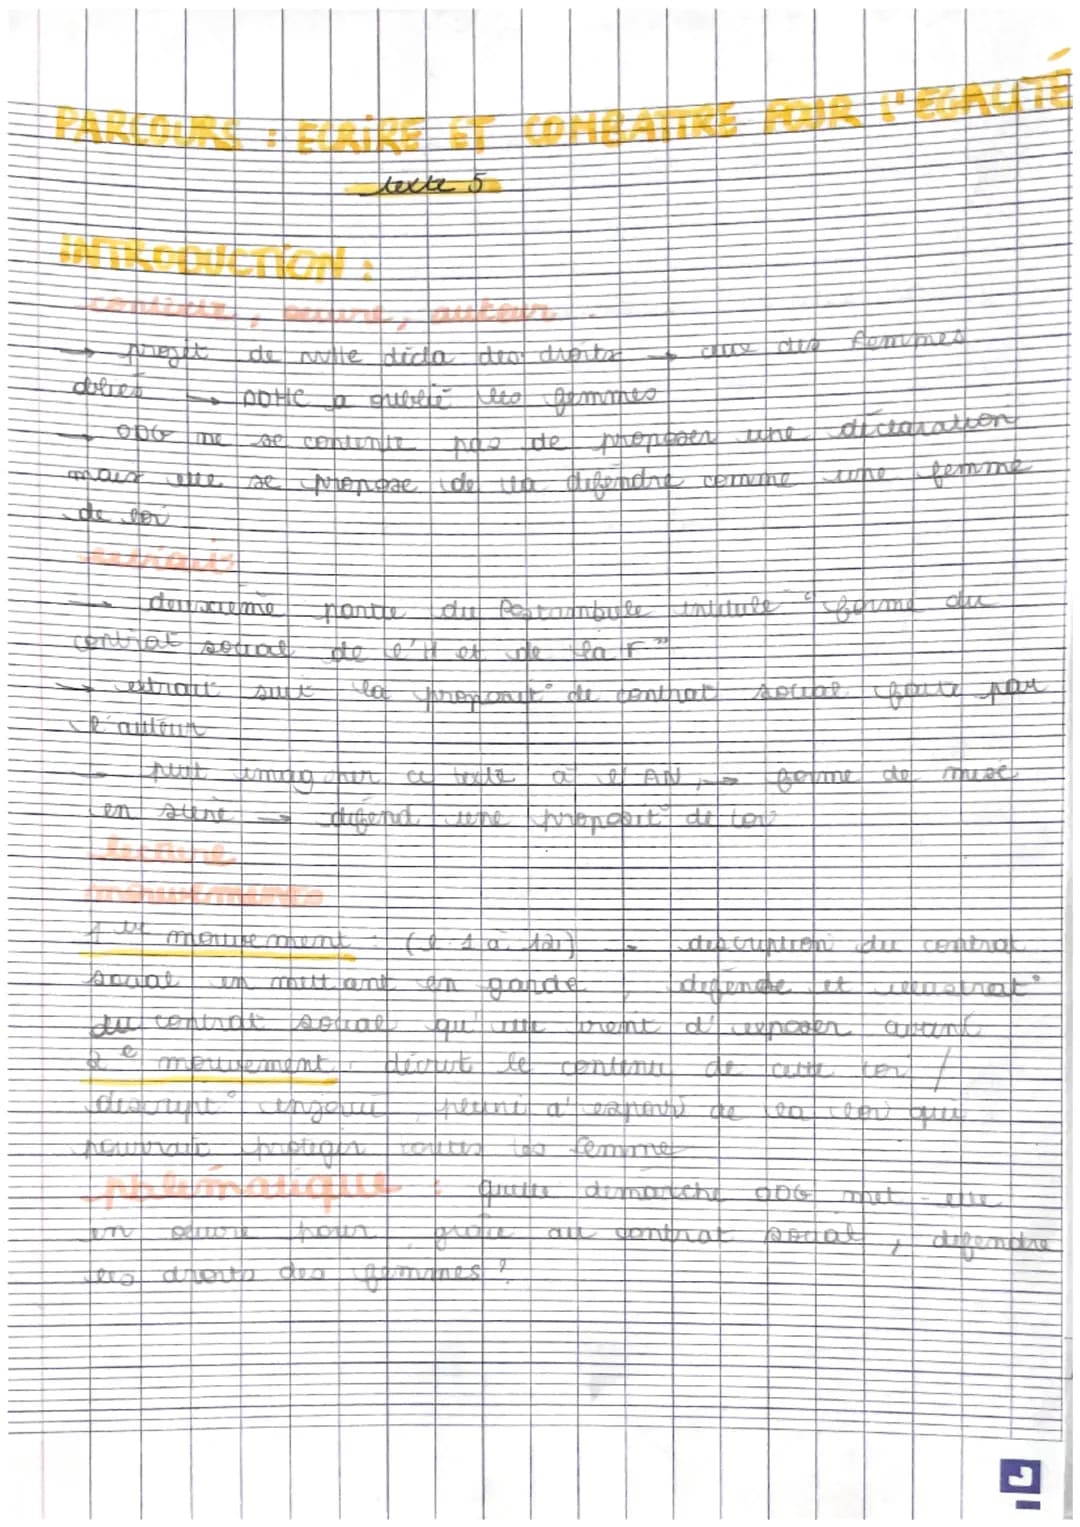 PARCOURS : ECRIRE ET COMBATTRE POUR L'EGALITÉ
texte 5
INTRODUCTION :
contexte, œuvre, auteur
→ projet de nvlle décla des droits → ceux des femmes
oubliés → DDHC a oublié les femmes
→ ODG ne se contente pas de proposer une déclaration
mais elle se propose de la défendre comme une femme
de loi
extrait
→ deuxième partie du Postambule intitulé "forme du
contrat social de l'H et de la F"
→ extrait suit la proposit° de contrat social faite par
l'auteur
→ peut imaginer ce texte à l'AN → forme de mise
en scène → défend une proposit° de loi
lecture
mouvements
1er mouvement : (l.1 à 12) → description du contrat
social en mettant en garde, défense et illustrat°
du contrat social qu'elle vient d'exposer avant
2e mouvement : décrit le contenu de cette loi /
descript° enjouée, pleine d'espoir de la loi qui
pourrait protéger toutes les femme
pblématique : quelle démarche ODG met-elle
en œuvre pour, grâce au contrat social, défendre
les droits des femmes ?